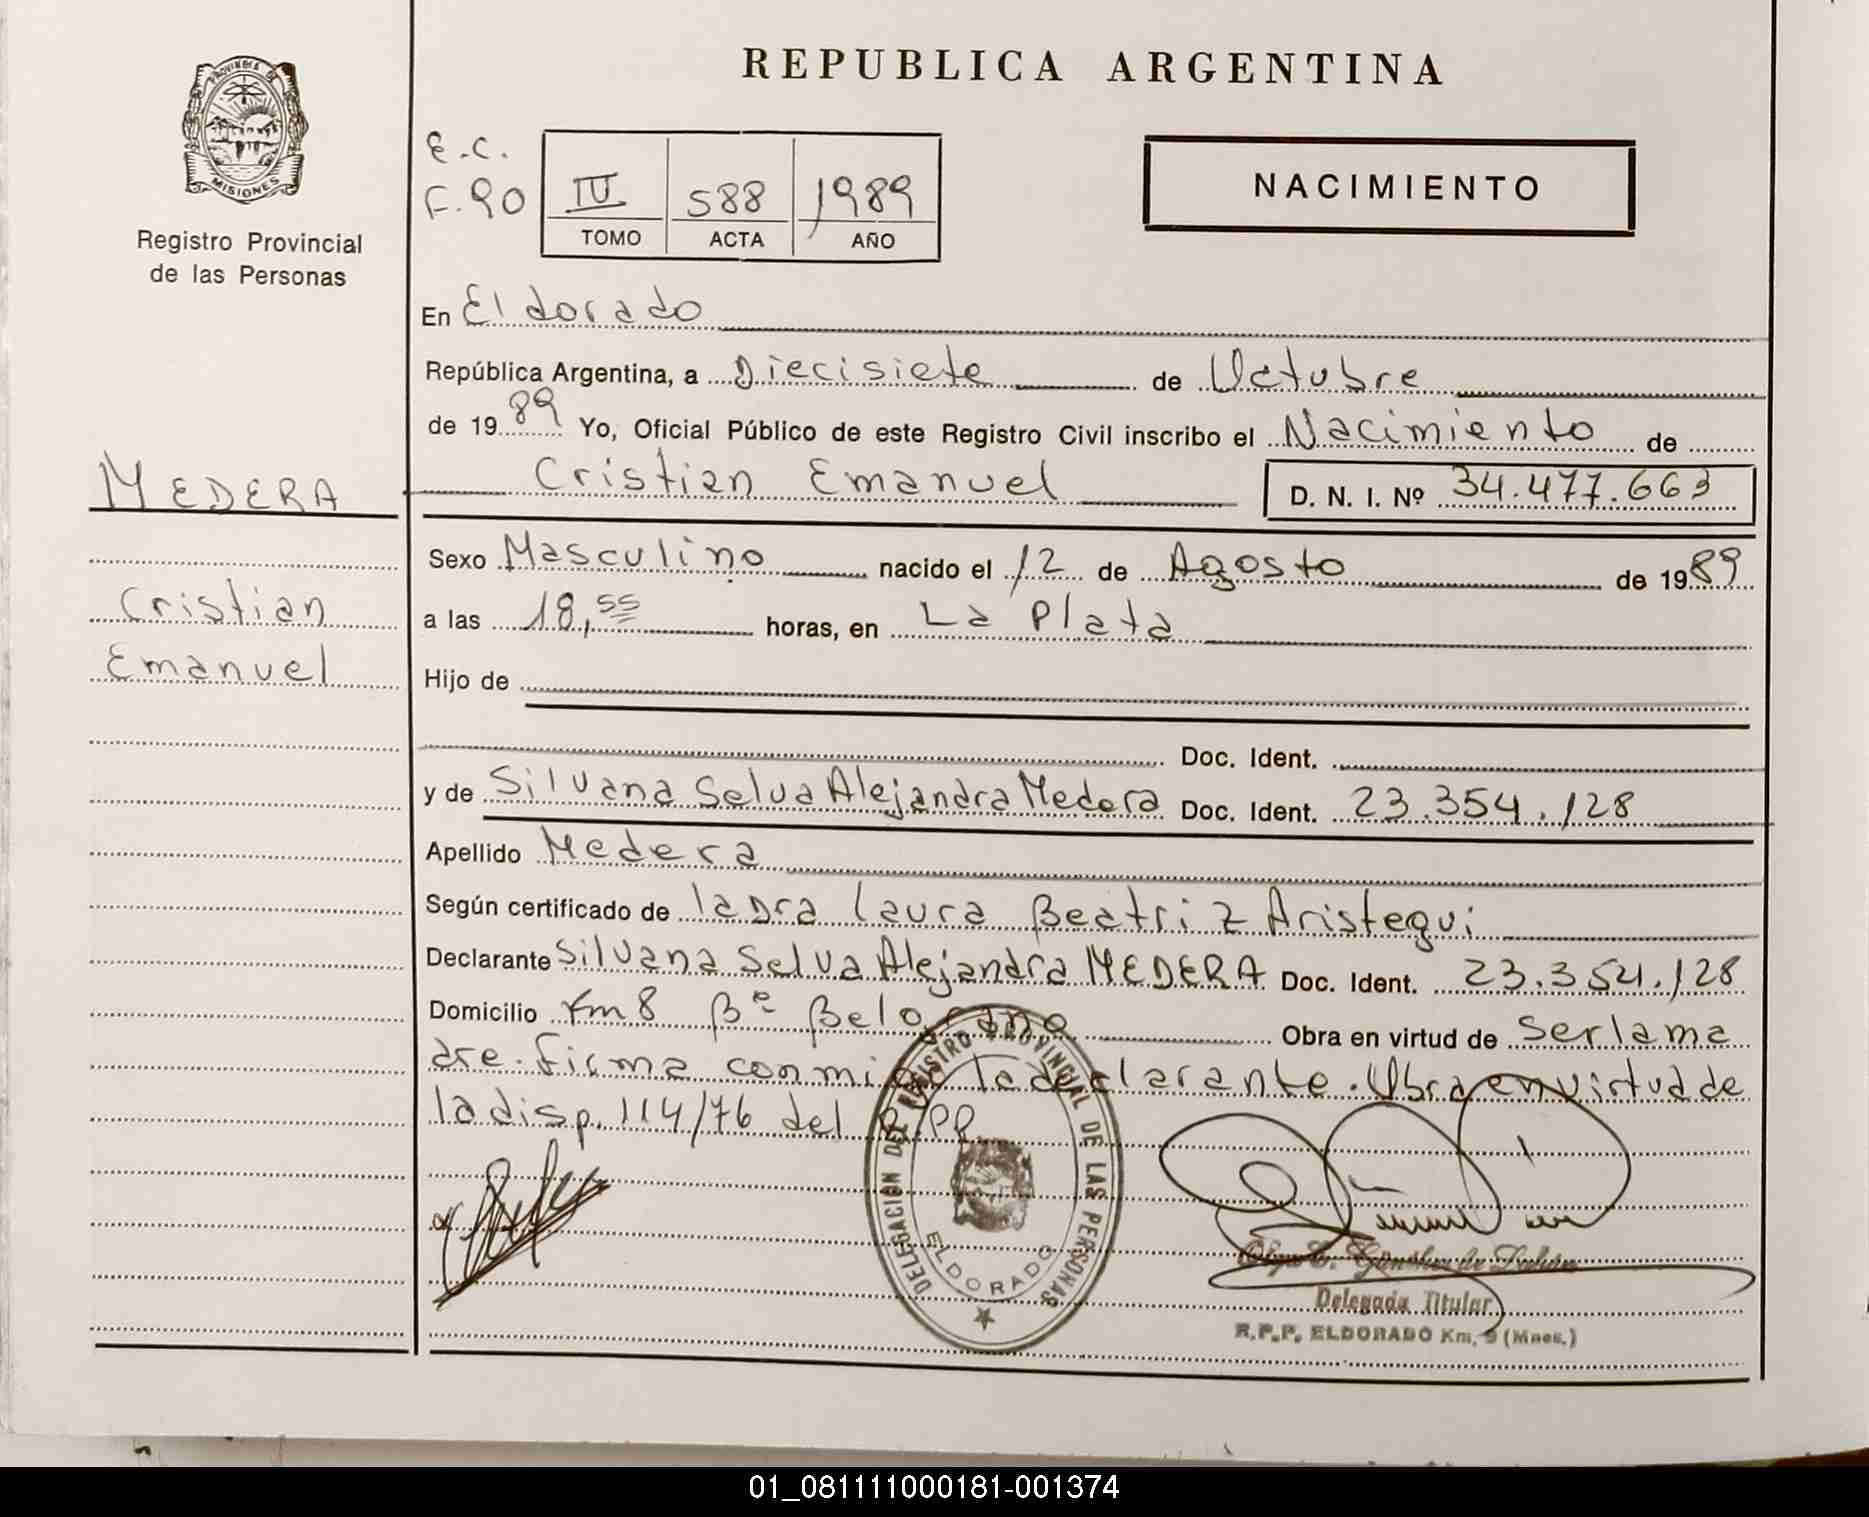 REPUBLICA ARGENTINA
PROVINCIA DE
MISIONES
Registro Provincial
de las Personas
E.C.
F.90
IV 588 1989
TOMO ACTA AÑO
NACIMIENTO
En Eldorado
República Argentina, a Diecisiete de Octubre
de 1989 Yo, Oficial Público de este Registro Civil inscribo el Nacimiento de
Cristian Emanuel D. N. I. Nº 34.477.663
MEDERA
Cristian
Emanuel
Sexo Masculino nacido el 12 de Agosto de 1989
a las 18,55 horas, en La Plata
Hijo de
Doc. Ident.
y de Silvana Selva Alejandra Medera Doc. Ident. 23.354.128
Apellido Medera
Según certificado de la Dra Laura Beatriz Aristegui
Declarante Silvana Selva Alejandra MEDERA Doc. Ident. 23.354.128
Domicilio Km 8 Bº Belgrano Obra en virtud de ser la ma
dre. Firma conmigo la declarante. Obra en virtud de
la disp. 114/76 del R.PP.
DELEGACION DEL REGISTRO PROVINCIAL DE LAS PERSONAS
ELDORADO
Delegada Titular
R.P.P. ELDORADO Km. 9 (Mnes.)
01_081111000181-001374